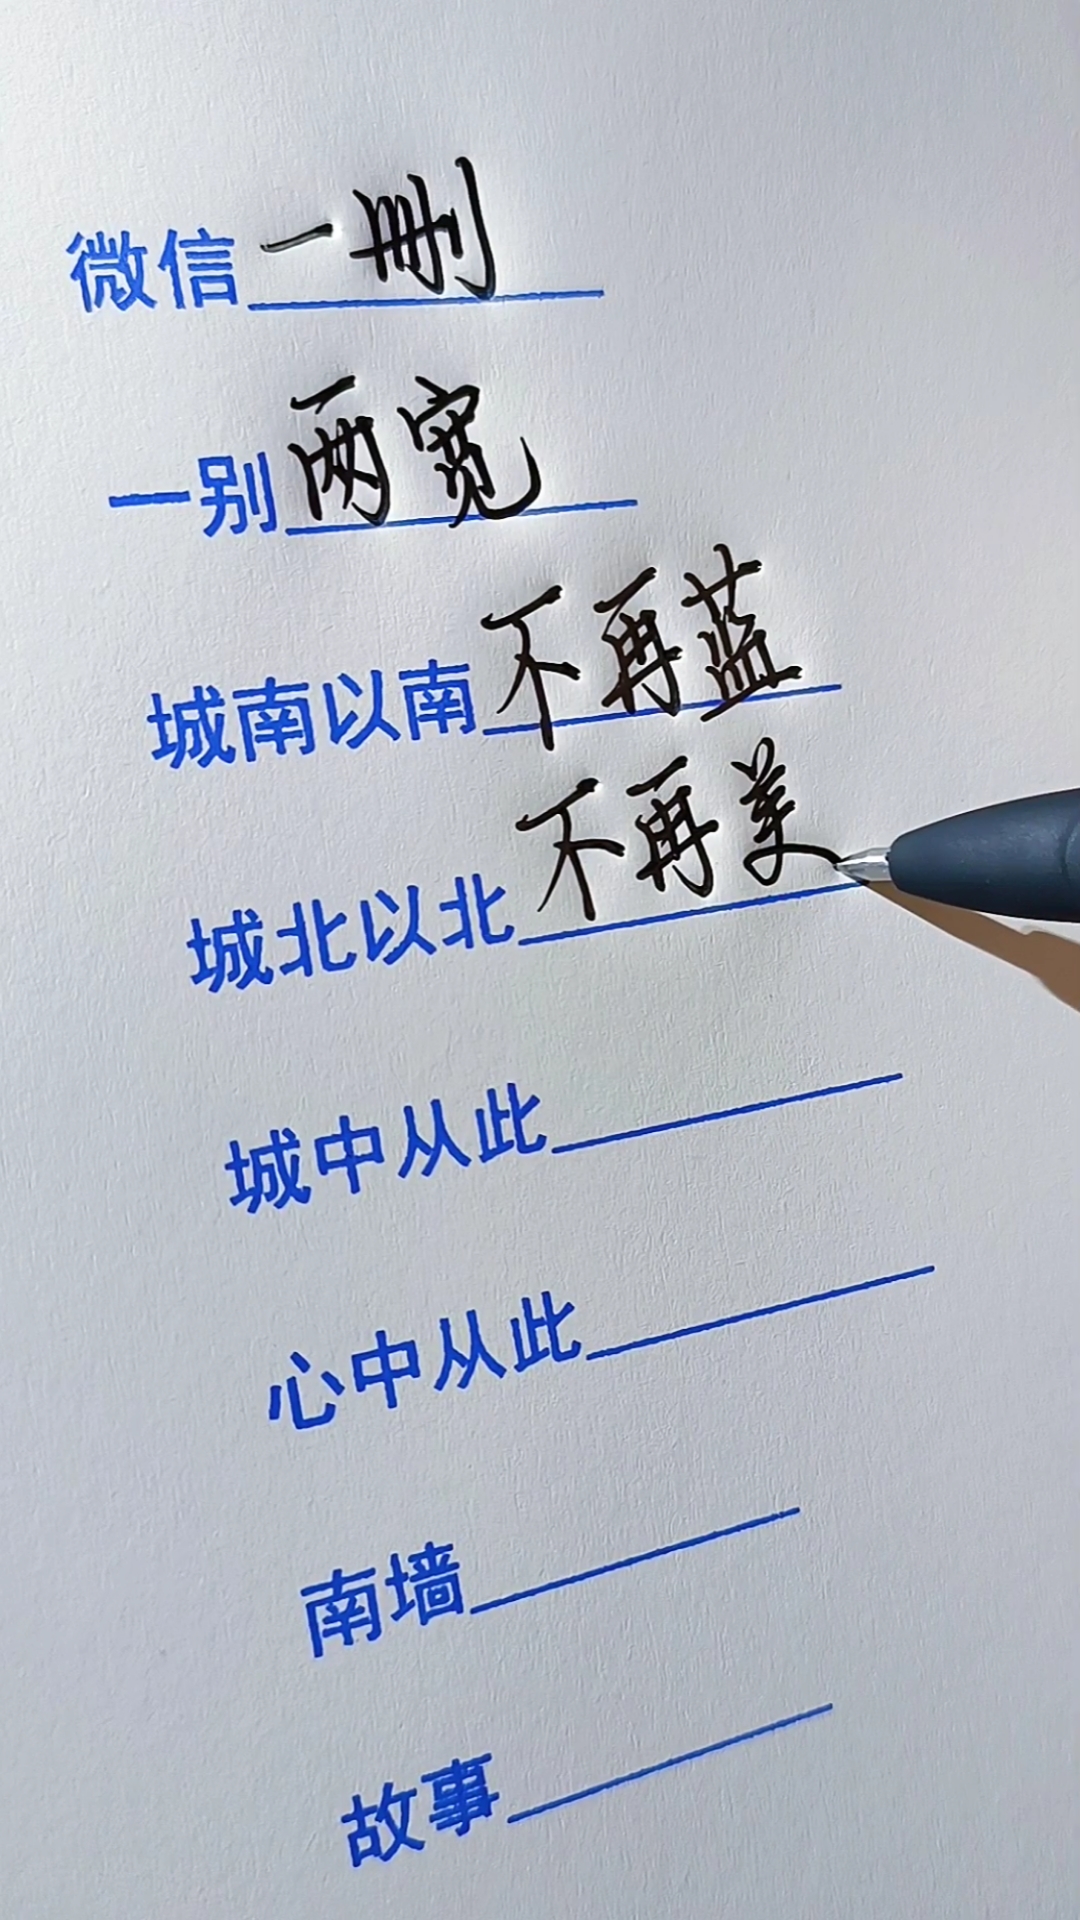 微信一删
一别两宽
城南以南不再蓝
城北以北不再美
城中从此
心中从此
南墙
故事